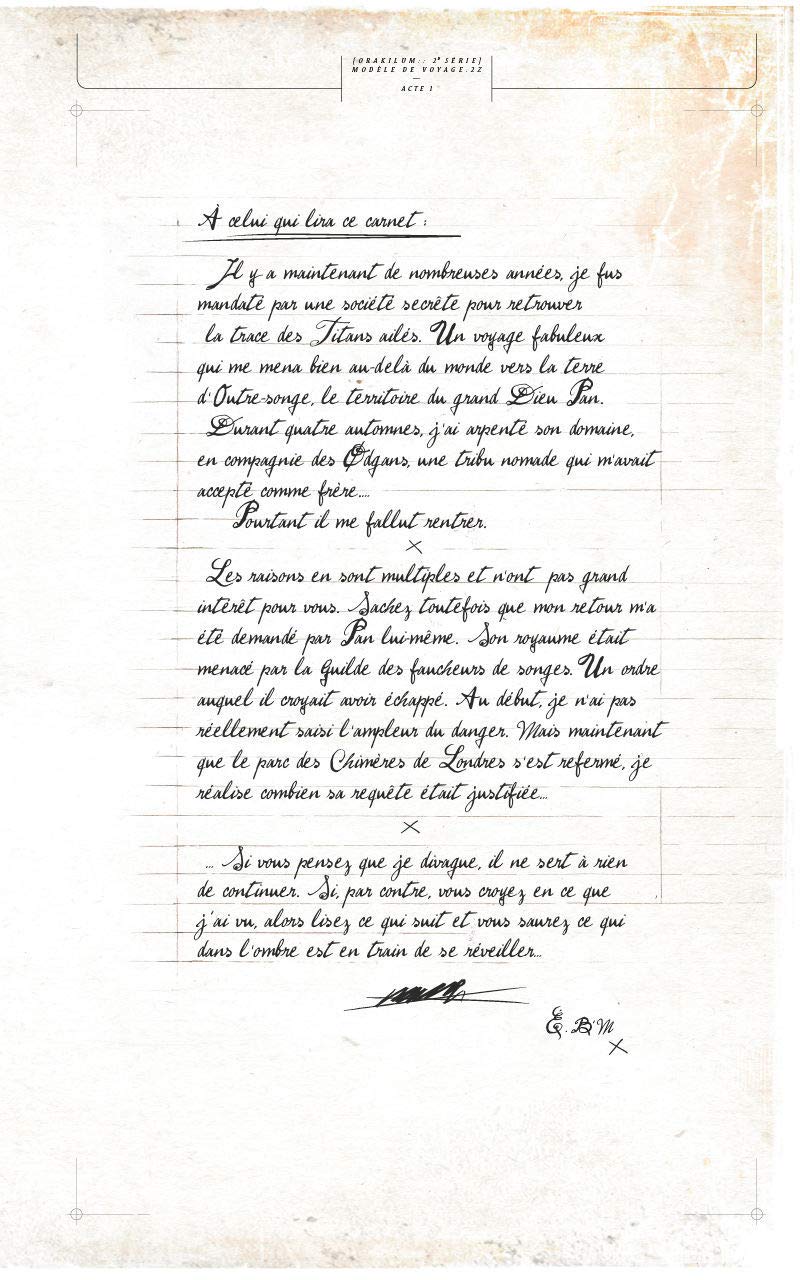 [ORAKILUM:: 2e SÉRIE]
MODÈLE DE VOYAGE.2Z
—
ACTE 1
À celui qui lira ce carnet :
Il y a maintenant de nombreuses années, je fus
mandaté par une société secrète pour retrouver
la trace des Titans ailés. Un voyage fabuleux
qui me mena bien au-delà du monde vers la terre
d'Outre-songe, le territoire du grand Dieu Pan.
Durant quatre automnes, j'ai arpenté son domaine,
en compagnie des Ødgans, une tribu nomade qui m'avait
accepté comme frère...
Pourtant il me fallut rentrer.
×
Les raisons en sont multiples et n'ont pas grand
intérêt pour vous. Sachez toutefois que mon retour m'a
été demandé par Pan lui-même. Son royaume était
menacé par la Guilde des faucheurs de songes. Un ordre
auquel il croyait avoir échappé. Au début, je n'ai pas
réellement saisi l'ampleur du danger. Mais maintenant
que le parc des Chimères de Londres s'est refermé, je
réalise combien sa requête était justifiée...
×
... Si vous pensez que je divague, il ne sert à rien
de continuer. Si, par contre, vous croyez en ce que
j'ai vu, alors lisez ce qui suit et vous saurez ce qui
dans l'ombre est en train de se réveiller...
E. B'M
×